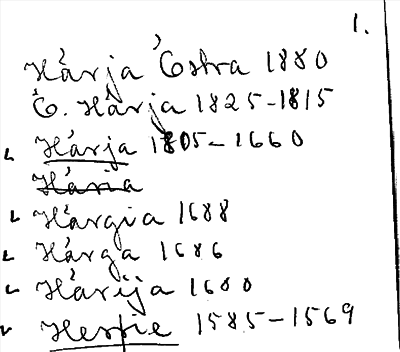 1.
Hárja Östra 1880
Ö. Hárja 1825-1815
Hárja 1805-1660
Hária
Hárgia 1688
Hárga 1686
Hárija 1680
1585-1569